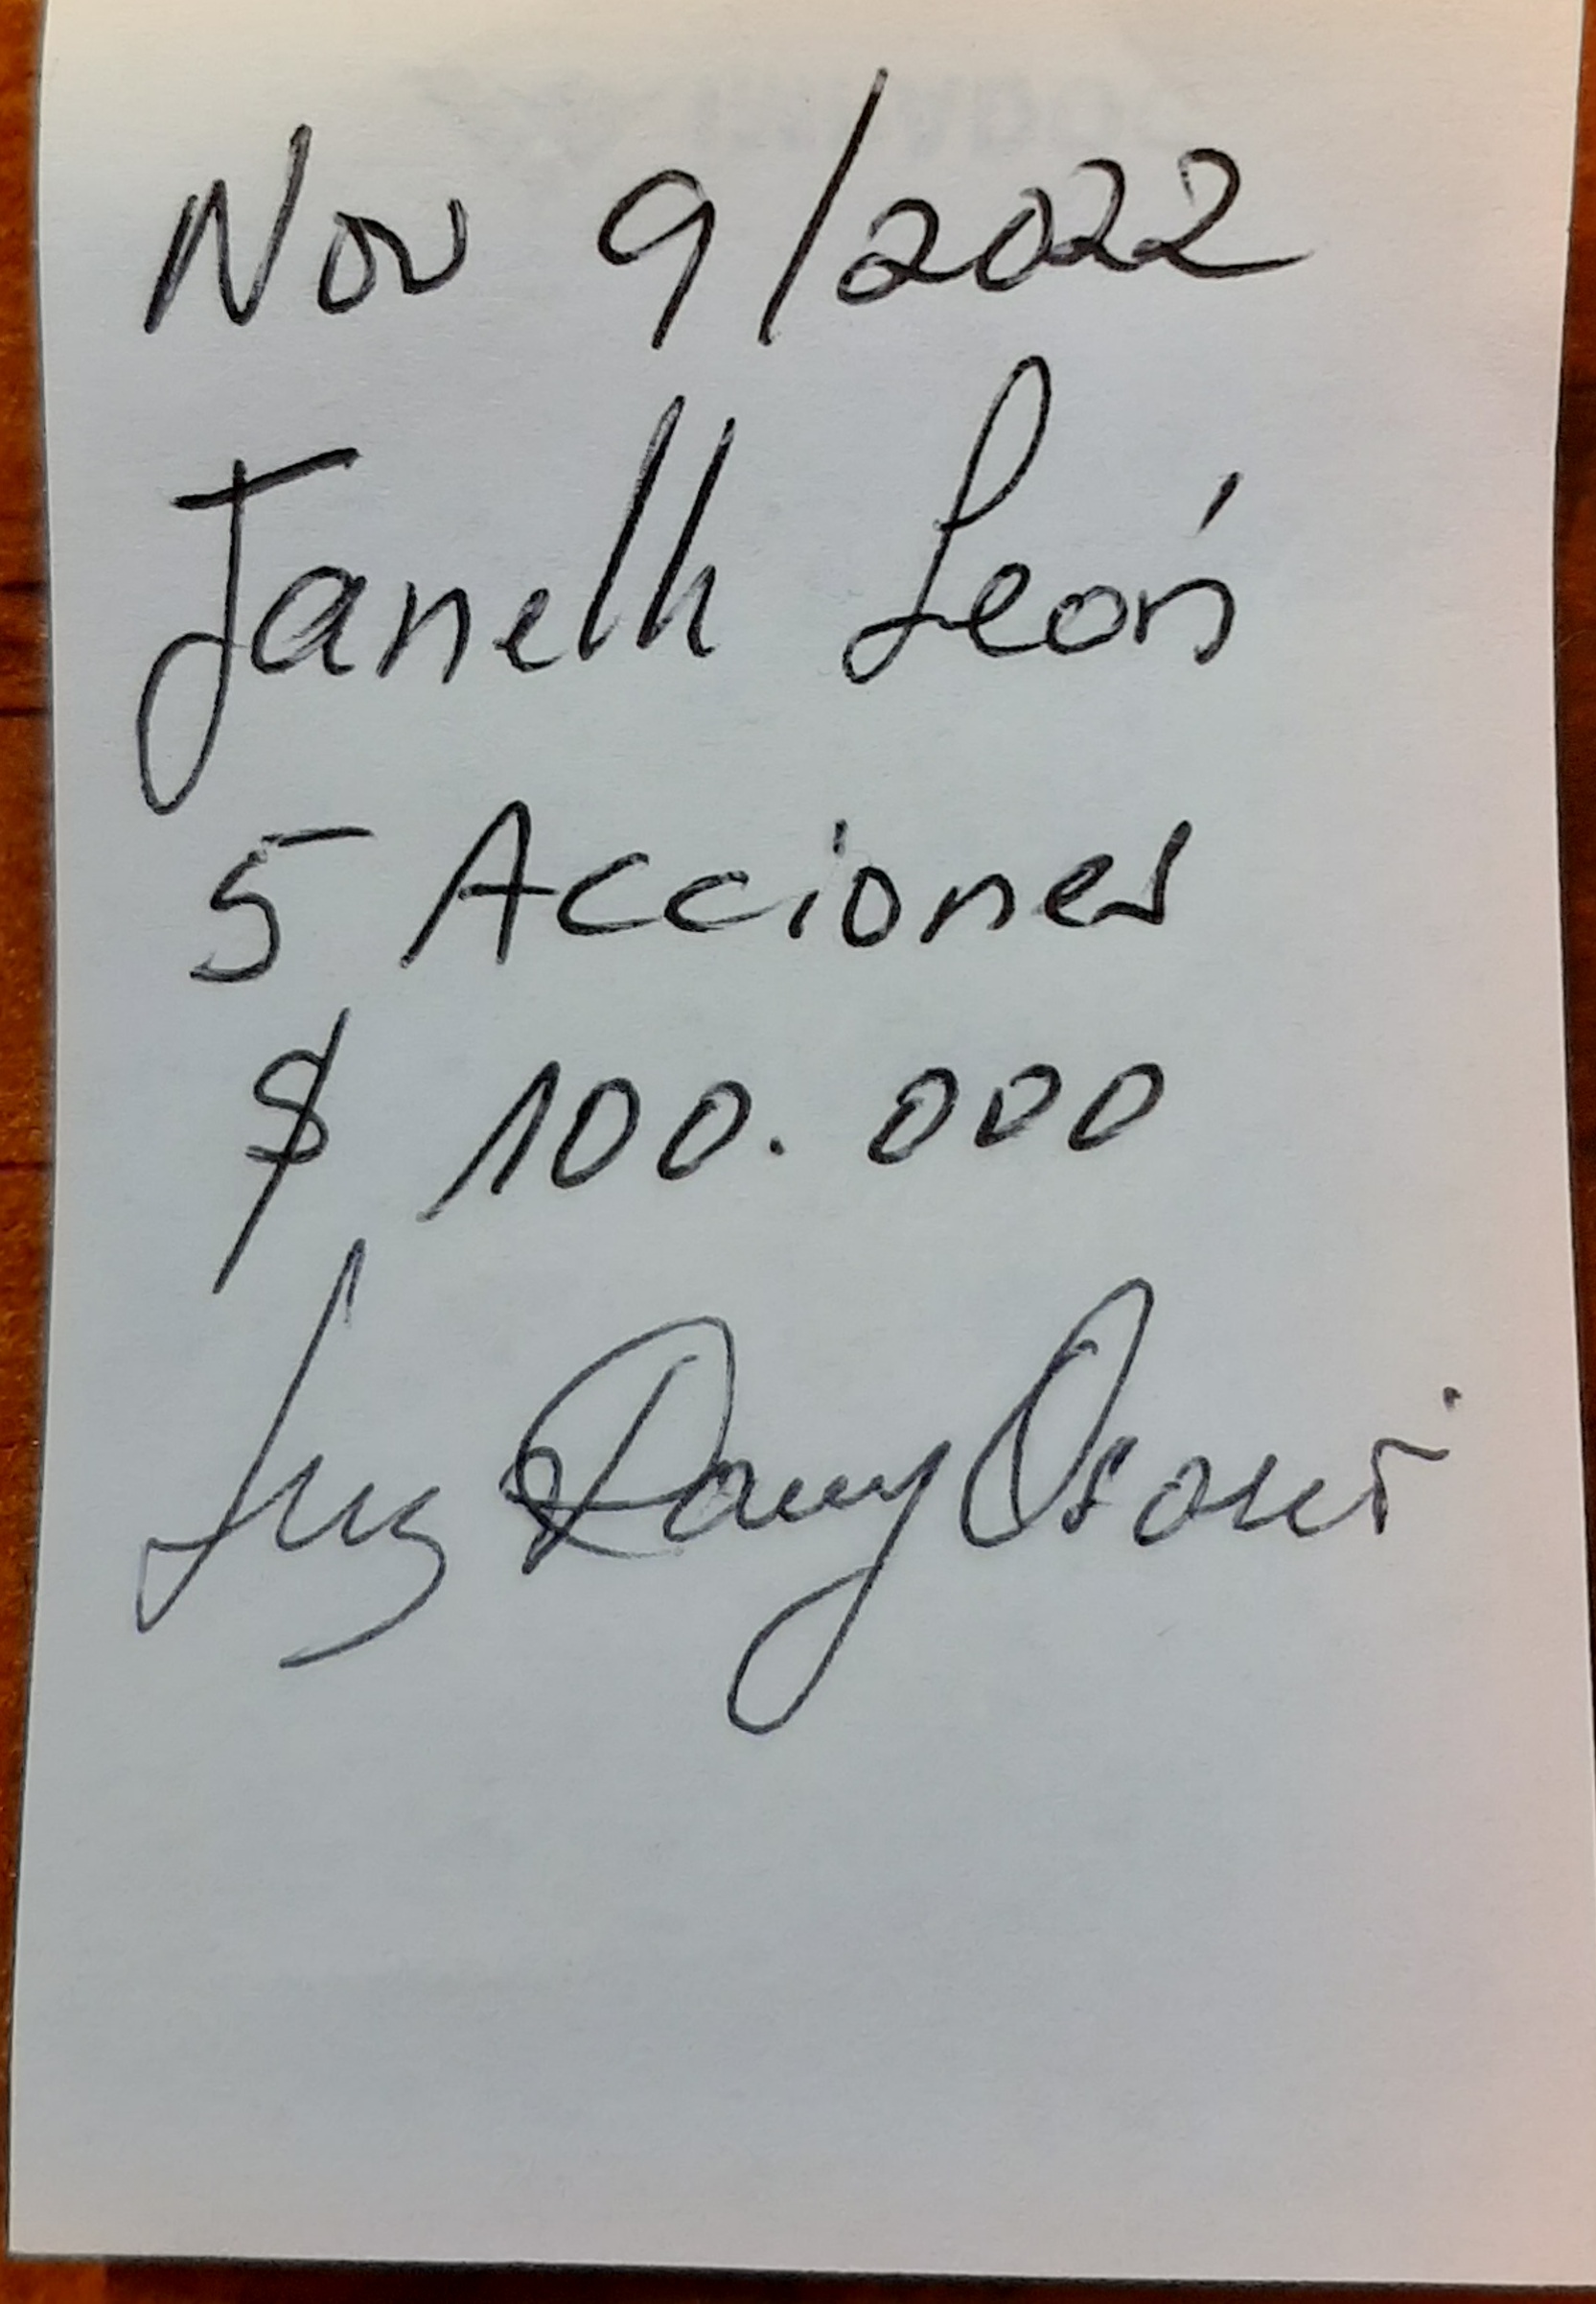 Nov 9/2022
Janeth León
5 Acciones
$ 100.000
Luz Dany Osori